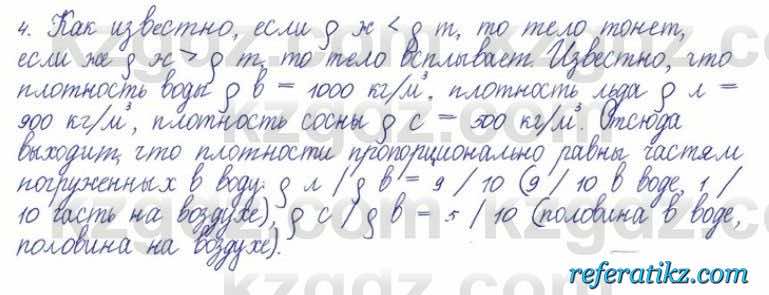 4. Как известно, если ρ ж < ρ т, то тело тонет,
если же ρ ж > ρ т, то тело всплывает. Известно, что
плотность воды ρ в = 1000 кг/м³, плотность льда ρ л =
900 кг/м³, плотность сосны ρ с = 500 кг/м³. Отсюда
выходит, что плотности пропорционально равны частям
погруженных в воду: ρ л / ρ в = 9 / 10 (9 / 10 в воде, 1 /
10 часть на воздухе), ρ с / ρ в = 5 / 10 (половина в воде,
половина на воздухе).
referatikz.com